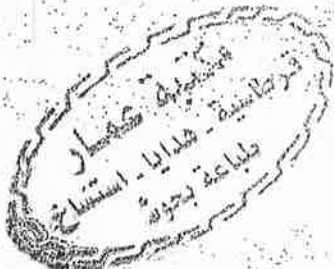 مكتبة كمبار
قرطاسية - هدايا - استنساخ
طباعة بحوث